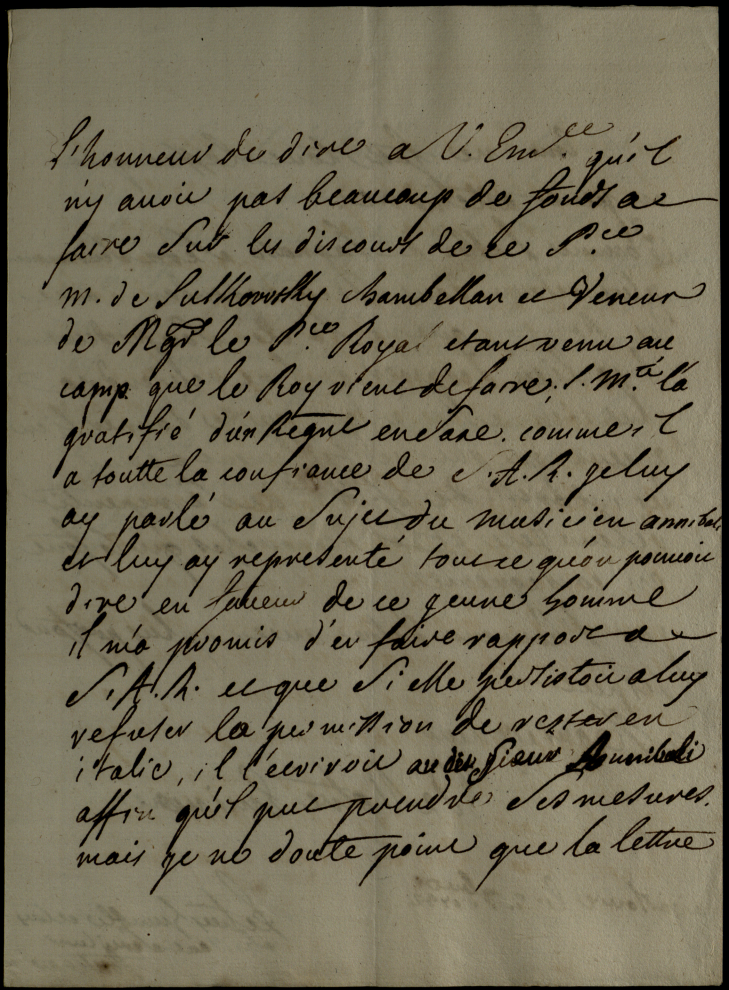 l'honneur de dire a V. Em.ce qu'il
n'y avoit pas beaucoup de fonds a
faire sur les discours de ce P.ce
m. de Sulkowsky chambellan et Veneur
de Mgr le P.ce Royal etant venu au
camp que le Roy vient de faire, S. M.té l'a
gratifié d'un Regnt en Saxe. comme il
a toutte la confiance de S. A. R. je luy
ay parlé au sujet du musicien annibali
et luy ay representé tout ce qu'on pouvoit
dire en faveur de ce jeune homme
il m'a promis d'en faire rapport a
S. A. R. et que si Elle persistoit a luy
refuser la permission de rester en
italie, il l'ecriroit au dit sieur Annibali
affin qu'il put prendre ses mesures.
mais je ne doute point que la lettre